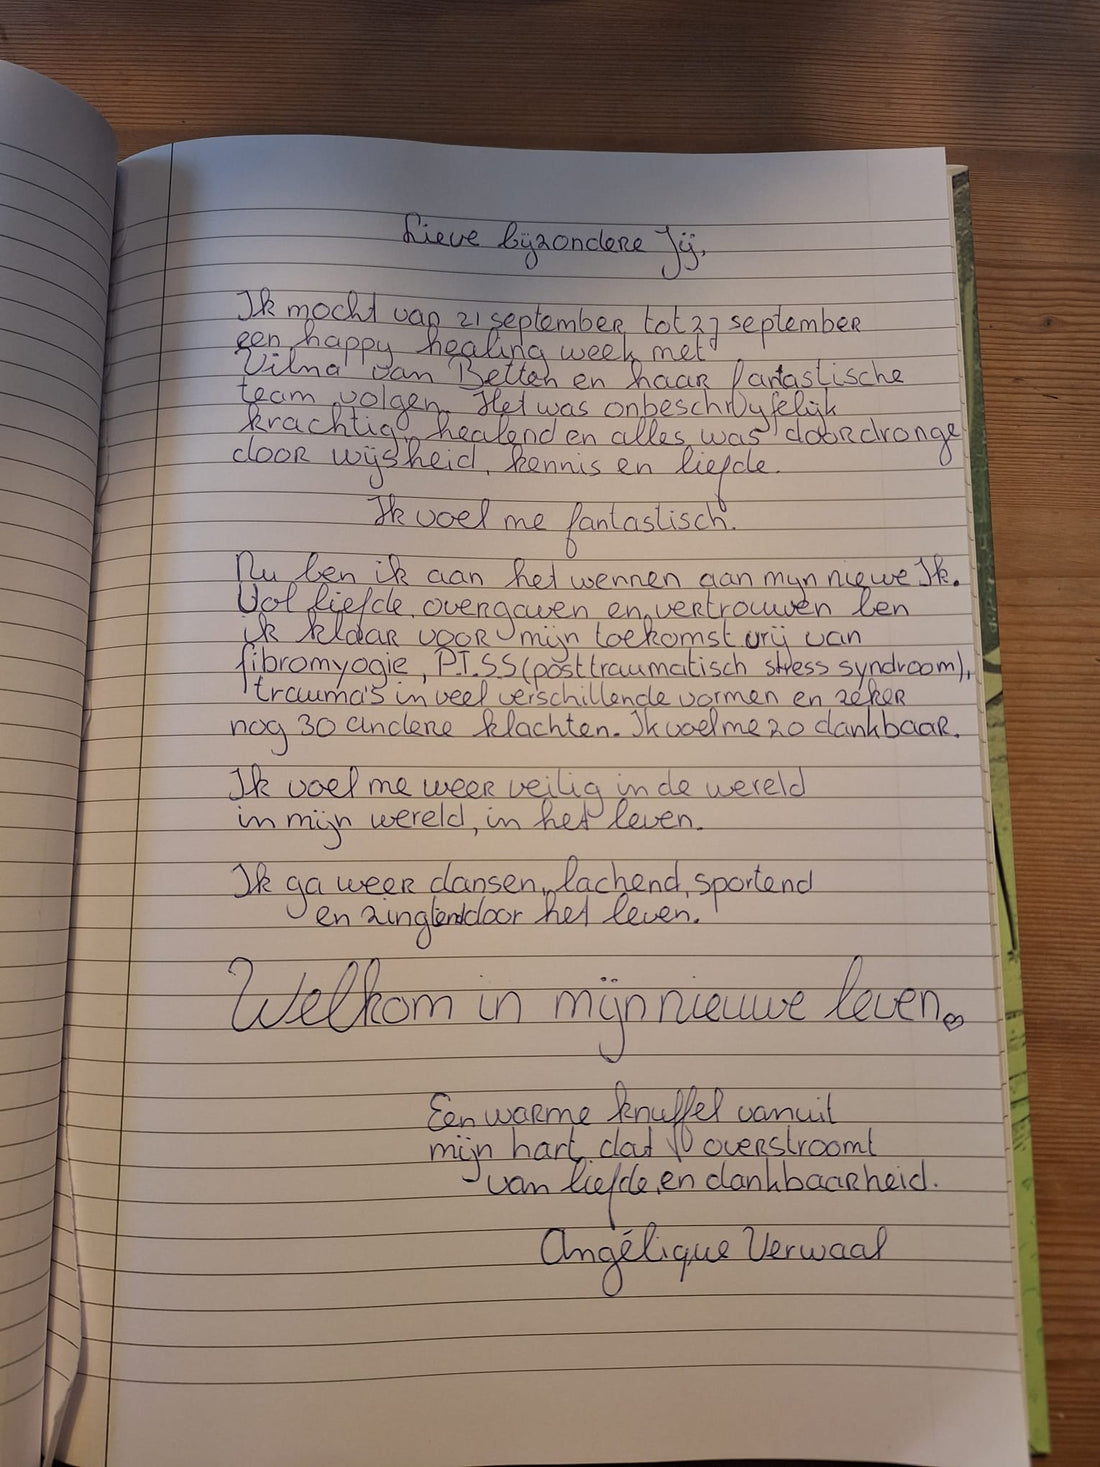 Lieve bijzondere Jij,
Ik mocht van 21 september tot 27 september
een happy healing week met
Vilna van Betten en haar fantastische
team volgen. Het was onbeschrijfelijk
krachtig, healend en alles was doordronge
door wijsheid, kennis en liefde.
Ik voel me fantastisch.
Nu ben ik aan het wennen aan mijn niewe Ik.
Vol liefde, overgaven en vertrouwen ben
ik klaar voor mijn toekomst vrij van
fibromyogie, P.T.S.S (posttraumatisch stress syndroom),
trauma's in veel verschillende vormen en zeker
nog 30 andere klachten. Ik voel me zo dankbaar.
Ik voel me weer veilig in de wereld
in mijn wereld, in het leven.
Ik ga weer dansen, lachend, sportend
en zingend door het leven.
Welkom in mijn nieuwe leven.
Een warme knuffel vanuit
mijn hart dat overstroomt
van liefde en dankbaarheid.
Angélique Verwaal